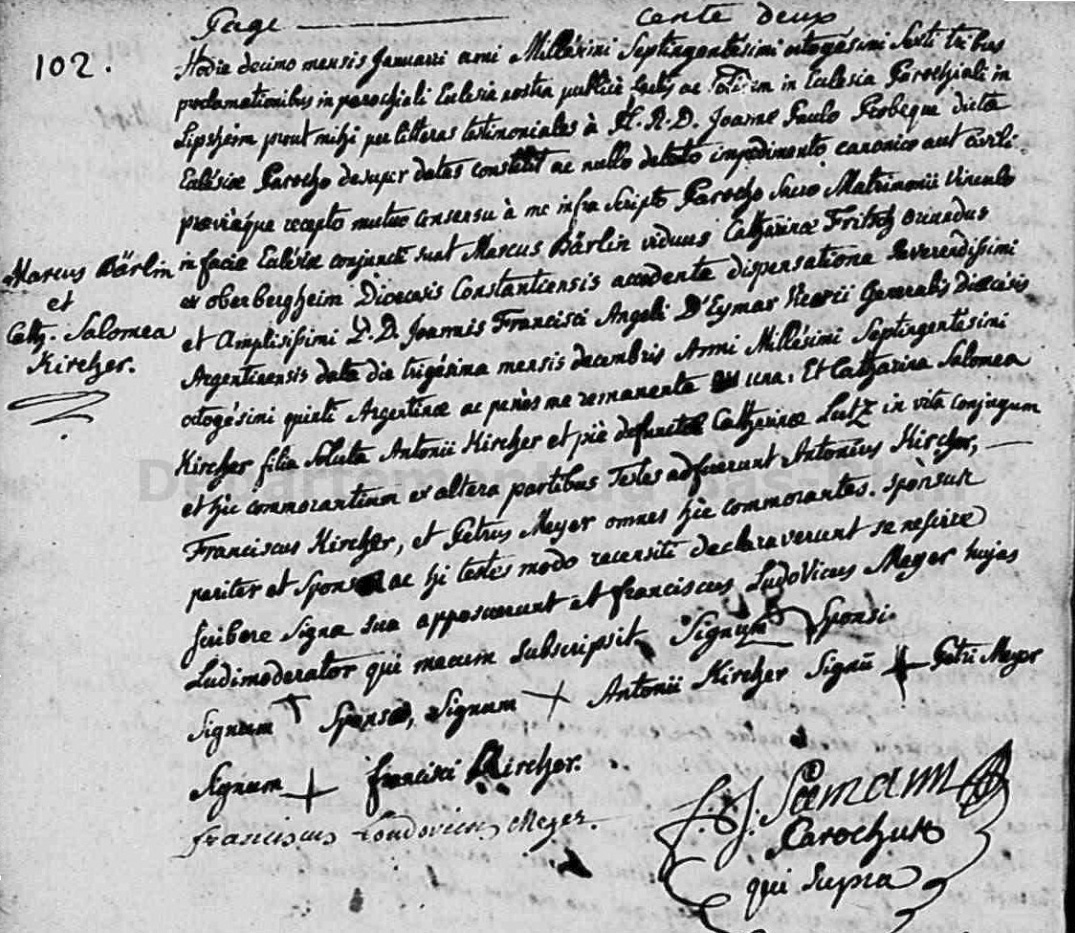 Page cente deux
102.
Hodie decimo mensis Januarii anni Millésimi Septingentésimi octogésimi Sexti tribus
proclamationibus in parochiali Eclesia nostra publicè factis ac in Eclesia Parochiali in
Lipsheim prout mihi per litteras testimoniales à Joanne Paulo dictæ
Eclésiæ Parocho desuper datas constitit ac nullo detecto impedimento canonico aut civili
praviàque recepto mutuo consensu à me infra Scripto Parocho Sacro Matrimonii Vinculo
in facie Eclésiæ conjuncti sunt Marcus Bärlin viduus Catharinæ Fritsch oriundus
ex oberbergheim Diœcesis Constantiensis accedente dispensatione Reverendissimi
et Amplissimi D.D. Joannis Francisci Angeli D'Eymar Vicarii Generalis diœcésis
Argentinensis data die trigésima mensis decembris Anni Millésimi Septingentésimi
octogésimi quinti Argentinæ ac penès me remanente una. Et Catharina Salomea
Kircher filia Soluta Antonii Kircher et piè defunctæ Catharinæ Lutz in vita conjugum
et hic commorantium ex altera partibus Testes adfuerunt Antonius Kircher,
Franciscus Kircher, et Petrus Meyer omnes hic commorantes. sponsus
pariter et Sponsa ac hi testes modo recensiti declaraverunt se nescire
scibere Signa sua apposuerunt et franciscus Ludovicus Meyer hujas
Ludimoderator qui mecum subscripsit. Signum Sponsi.
Signum Sponsæ, Signum + Antonii Kircher Signū + Petri Meyer
Signum + francisci Kircher.
franciscus Loudovicus Meyer.
Parochus
qui Supra
Marcus Bärlin
et
Cath. Salomea
Kircher.
Département du Bas-Rhin